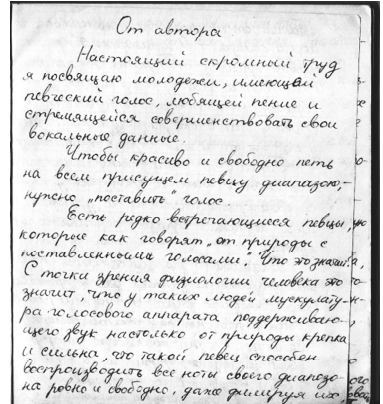 От автора
Настоящий скромный труд
я посвящаю молодежи, имеющей
певческий голос, любящей пение и
стремящейся совершенствовать свои
вокальные данные.
Чтобы красиво и свободно петь
на всем присущем певцу диапазоне,
нужно „поставить" голос.
Есть редко встречающиеся певцы,
которые как говорят „от природы с
поставленными голосами". Что это значит?
С точки зрения физиологии человека это
значит, что у таких людей мускулату-
ра голосового аппарата поддерживаю-
щего звук настолько от природы крепка
и сильна, что такой певец способен
воспроизводить все ноты своего диапазо-
на ровно и свободно, даже филируя их